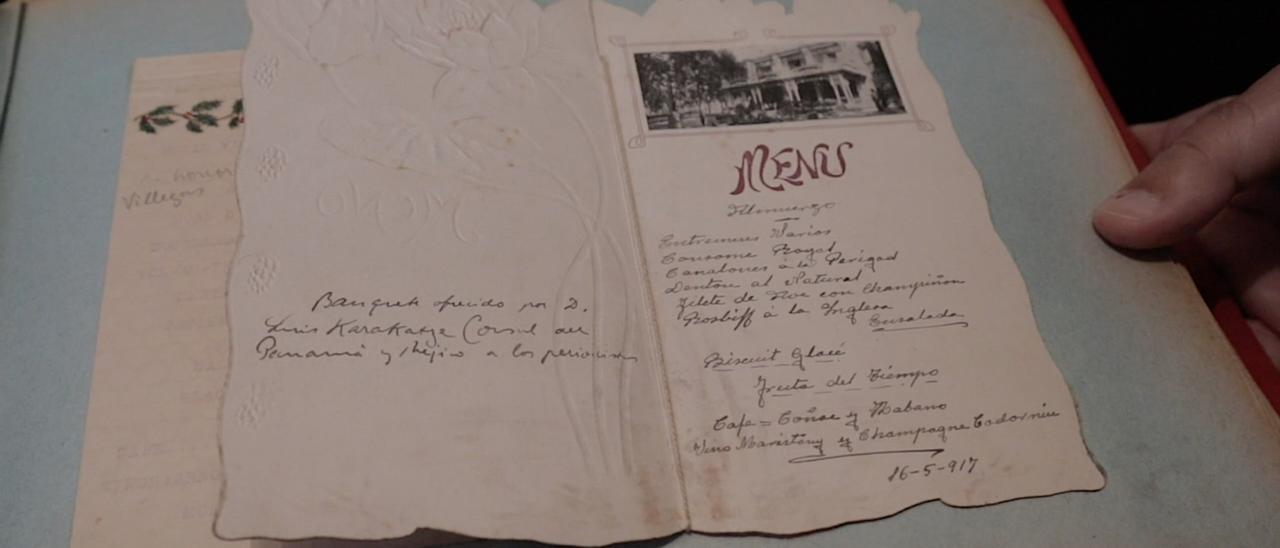 honor
Villegas
MENU
Banquete ofrecido por D.
Luis Karakatze Consul de
Panamá y Méjico a los periodistas
MENU
Almuerzo
Entremeses Varios
Consome Royal
Canalones à la Perigod
Denton al Natural
Filete de con Champiñon
Rosbiff à la Inglesa
Ensalada
Biscuit Glacé
Fruta del Tiempo
Cafe = Coñac y Habano
Vino Maristany y Champagne Codorniu
16-5-917